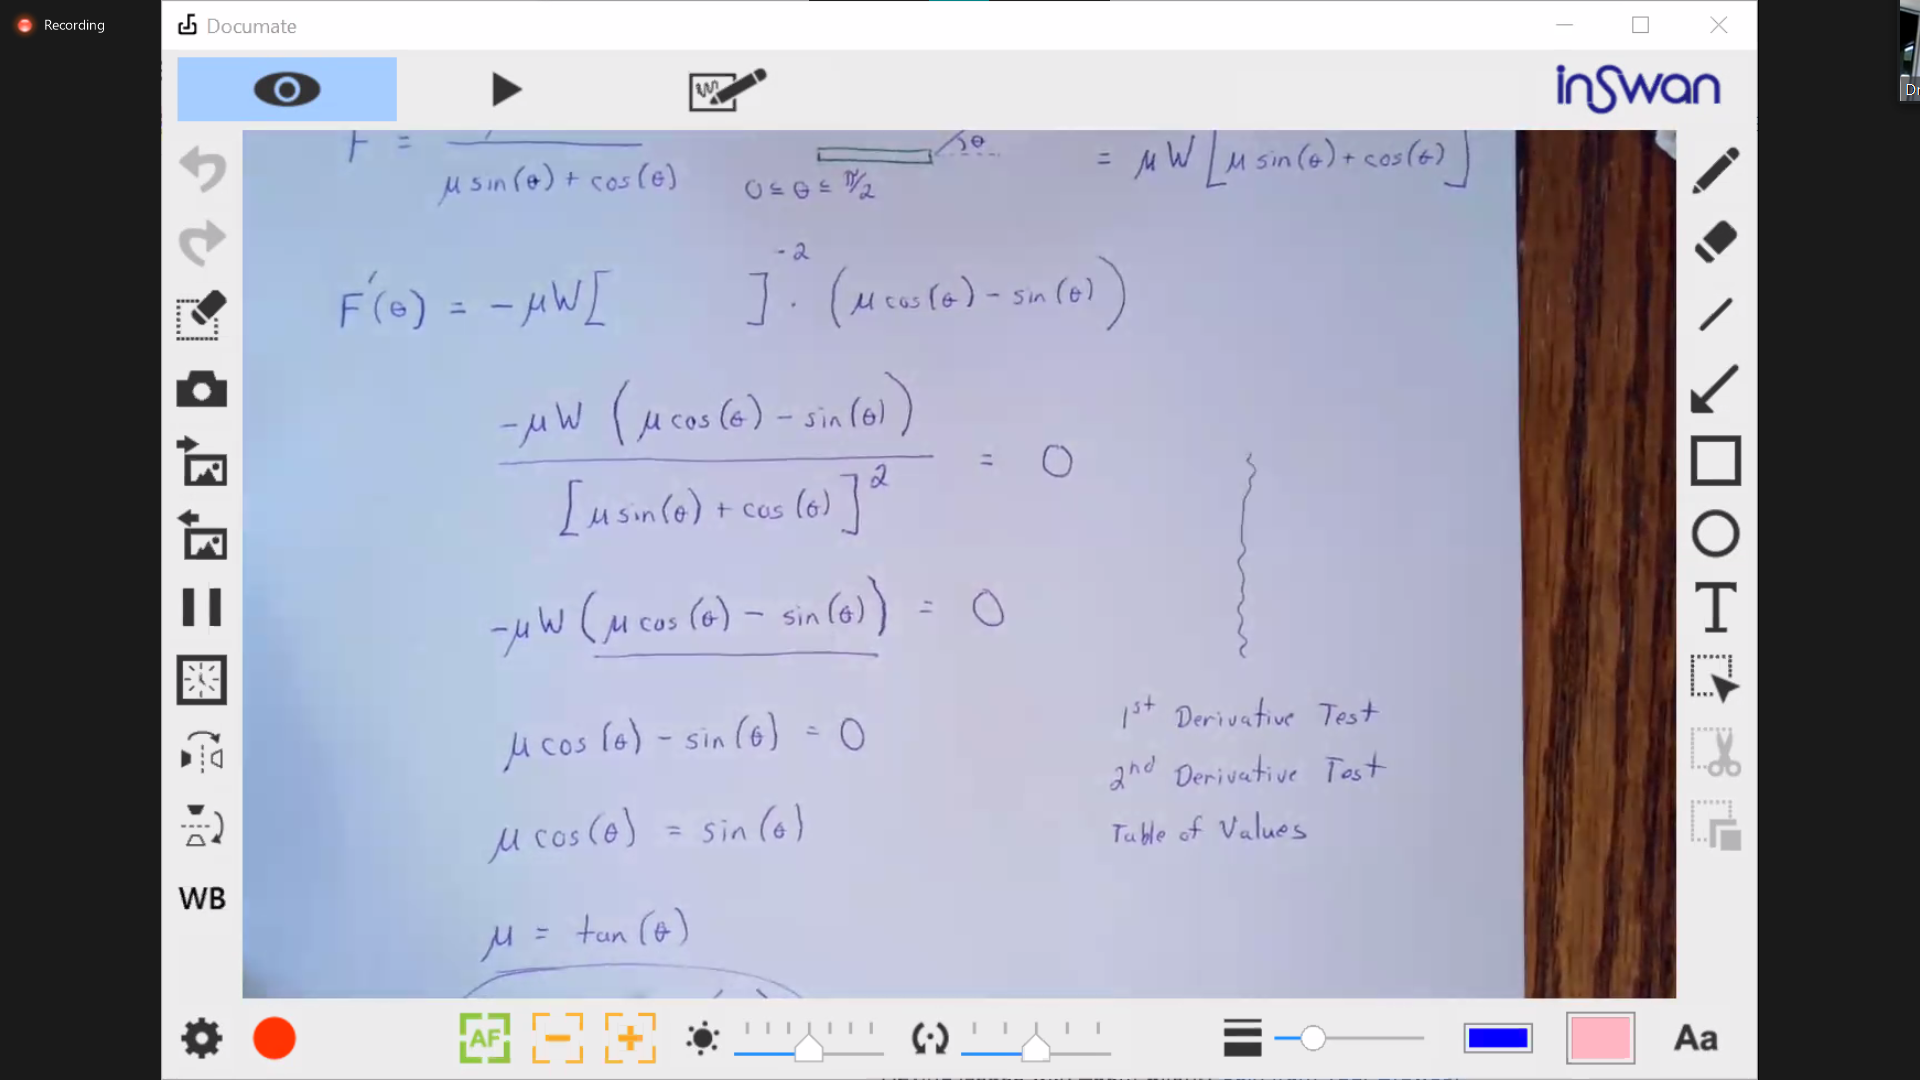 Recording
Documate
inSwan
F =
μ sin(θ) + cos(θ)
θ
0 ≤ θ ≤ π/2
= μW [μ sin(θ) + cos(θ)]
F'(θ) = -μW [ ]⁻² · (μ cos(θ) - sin(θ))
-μW (μ cos(θ) - sin(θ))
[μ sin(θ) + cos(θ)]² = 0
-μW (μ cos(θ) - sin(θ)) = 0
μ cos(θ) - sin(θ) = 0
μ cos(θ) = sin(θ)
μ = tan(θ)
1st Derivative Test
2nd Derivative Test
Table of Values
WB
T
AF
Aa